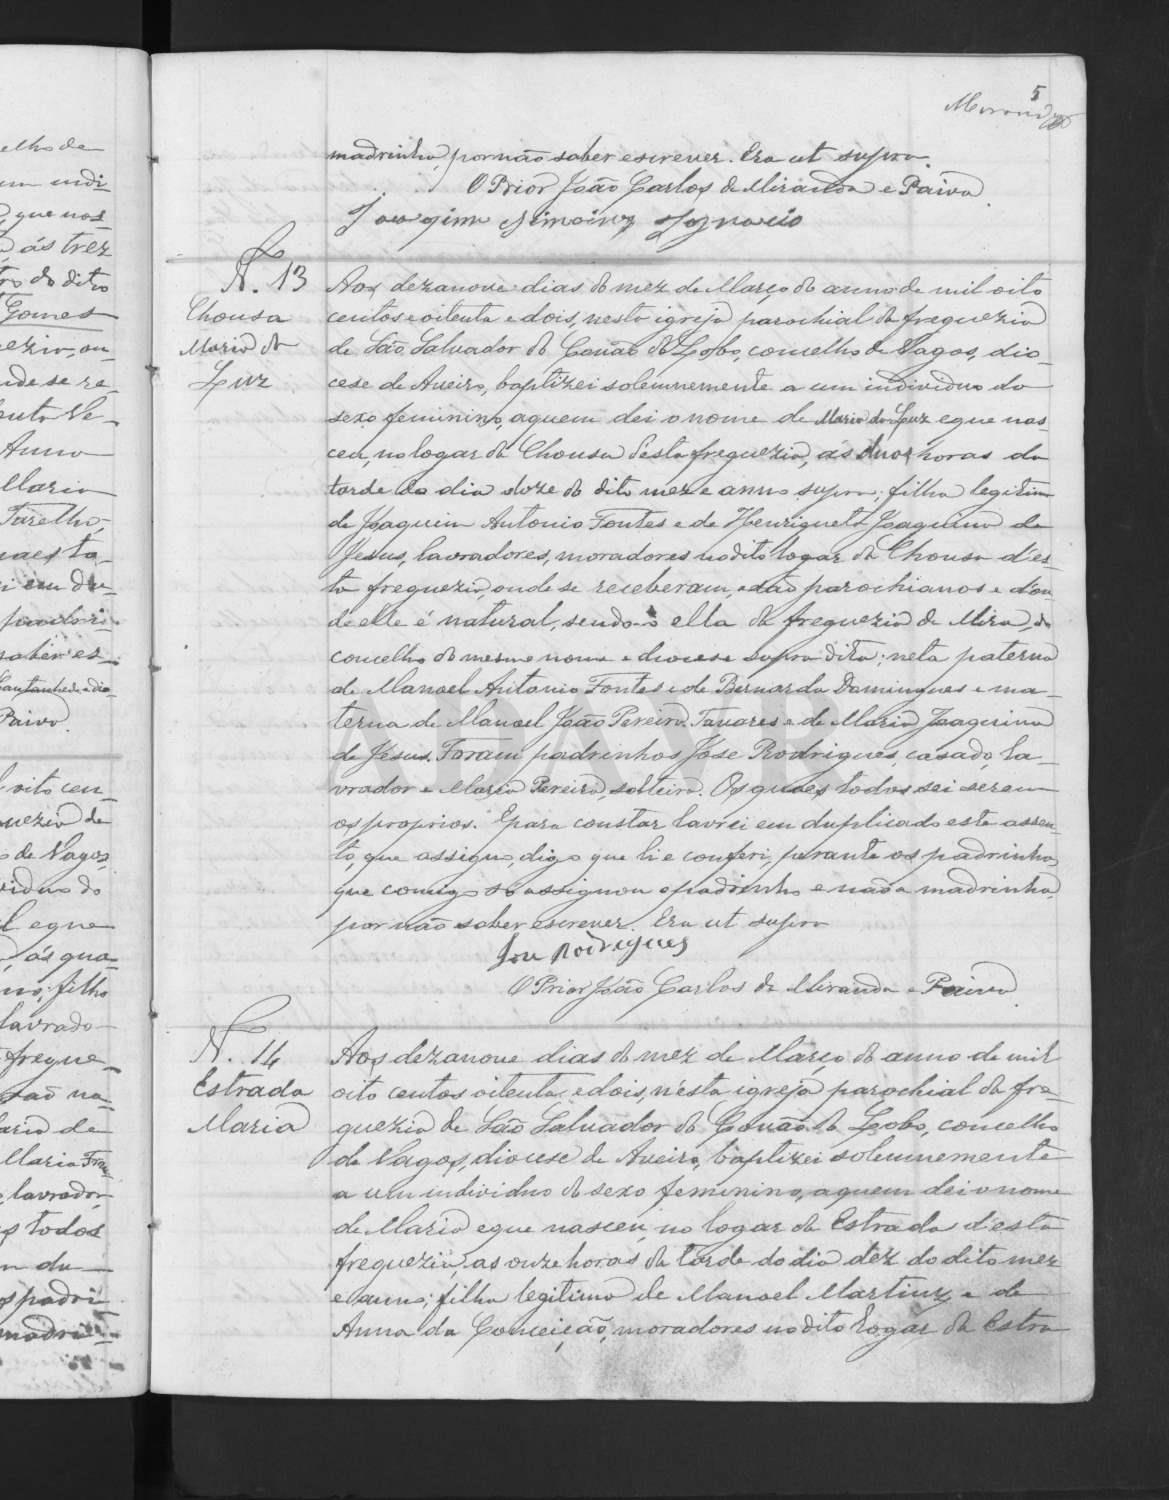 5
Miranda
madrinha, por não saber escrever. Era ut supra.
O Prior João Carlos de Miranda e Paiva.
Joaquim Simoins Ignacio
N. 13
Chousa
Maria da
Luz
Aos dezanove dias do mez de Março do anno de mil oito
centos e oitenta e dois, nesta igreja parochial da freguezia
de São Salvador do Couão do Lobo, concelho de Vagos, dio-
cese de Aveiro, baptizei solemnemente a um individuo do
sexo feminino, aquem dei o nome de Maria da Luz e que nas-
ceu, no logar da Chousa d'esta freguezia, as duas horas da
tarde do dia doze do dito mez e anno supra; filha legitima
de Joaquim Antonio Fontes e de Henriqueta Joaquina de
Jesus, lavradores, moradores no dito logar da Chousa d'es-
ta freguezia, onde se receberam, e são parochianos e d'on-
de elle é natural, sendo-o ella da freguezia de Mira, do
concelho do mesmo nome e diocese supra dita; neta paterna
de Manoel Antonio Fontes e de Bernarda Domingues e ma-
terna de Manoel João Pereira Tavares e de Maria Joaquina
de Jesus. Foram padrinhos José Rodrigues, casado, la-
vrador e Maria Pereira, solteira. Os quaes todos sei serem
os proprios. E para constar lavrei em duplicado este assen-
to, que assigno, digo que li e conferi, perante os padrinhos,
que comigo só assignou o padrinho e não a madrinha,
por não saber escrever. Era ut supra
Jose Rodrigues
O Prior João Carlos de Miranda e Paiva.
N. 14
Estrada
Maria
Aos dezanove dias do mez de Março do anno de mil
oito centos oitenta e dois, n'esta igreja parochial da fre-
guezia de São Salvador do Couão do Lobo, concelho
de Vagos, diocese de Aveiro, baptizei solemnemente
a um individuo do sexo feminino, aquem dei o nome
de Maria e que nasceu, no logar da Estrada d'esta
freguezia, as onze horas da tarde do dia dez do dito mez
e anno; filha legitima de Manoel Martins e de
Anna da Conceição, moradores no dito logar da Estra-